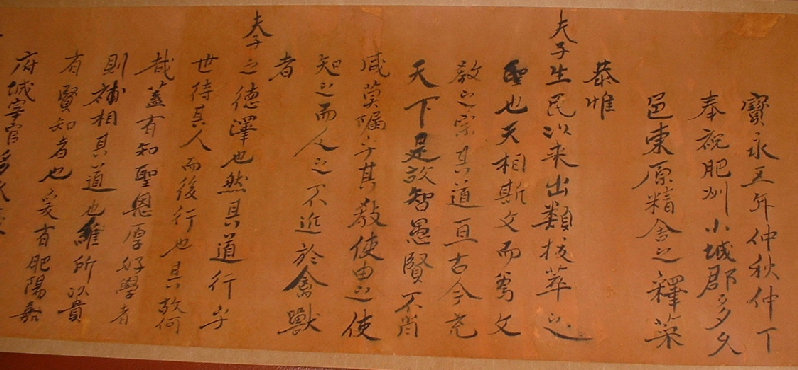 寳永五年仲秋仲丁
奉祝肥州小城郡多久
邑東原精舎之釋菜
恭惟
夫子生民以来出類拔萃之
聖也天相斯文而為文
教之宗其道亘古今充
天下是故智愚賢不肖
咸莫漏乎其教使由之使
知之而人之不近於禽獸
者
夫子之德澤也然其道行乎
世待其人而後行也其故何
哉蓋有知聖恩厚好學者
則補相其道也維所以貴
有賢知者也爰有肥陽嘉
府城宰官多